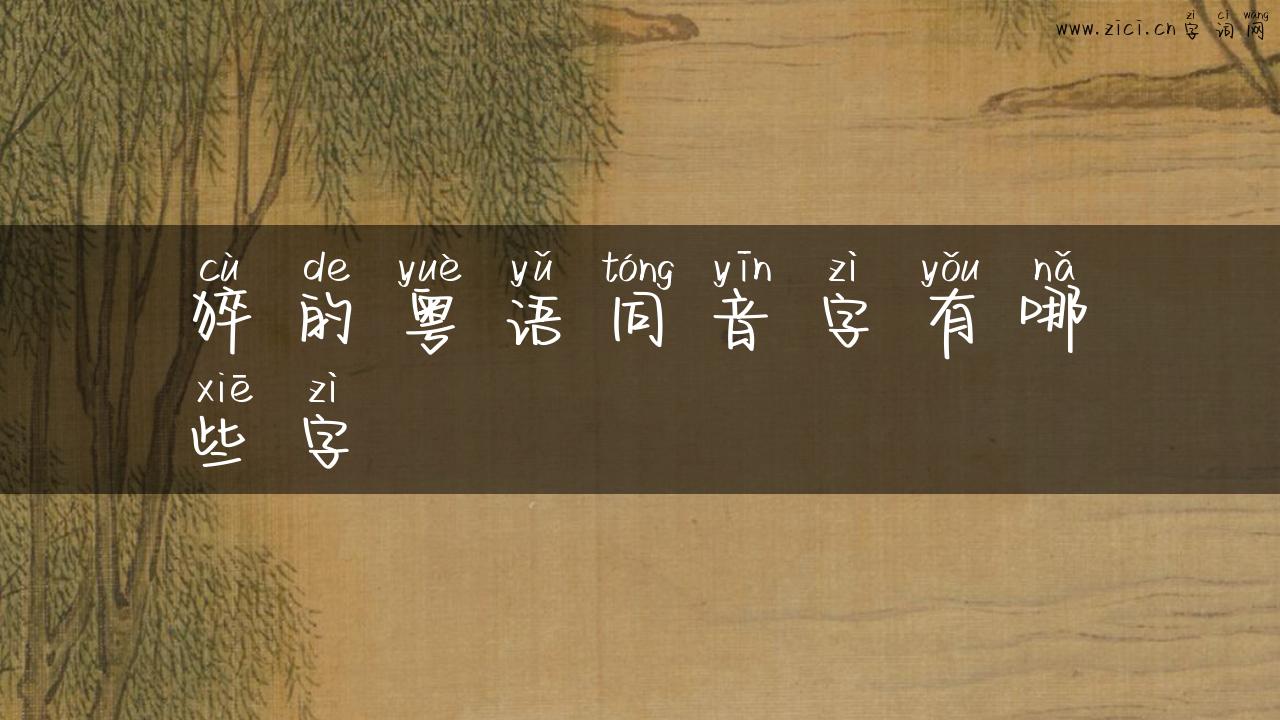 zì cí wǎng
www.zici.cn字词网
cù de yuè yǔ tóng yīn zì yǒu nǎ
猝的粤语同音字有哪
xiē zì
些字